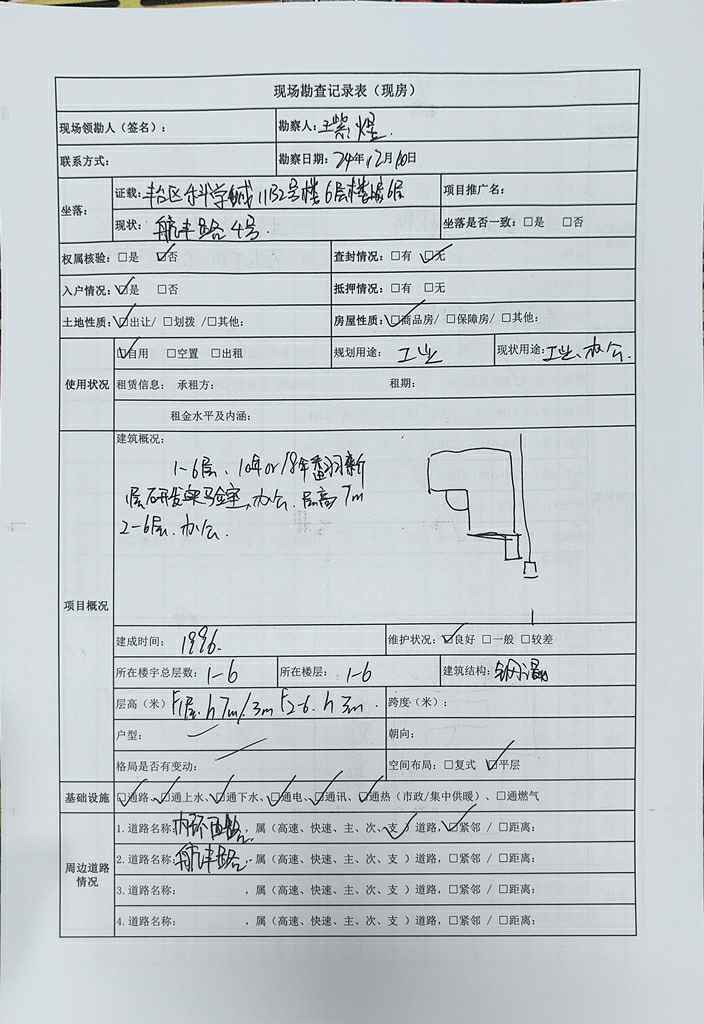 现场勘查记录表（现房）
现场领勘人（签名）： 勘察人：王紫煜
联系方式： 勘察日期：24年12月10日
坐落： 证载：丰台区科学城11B2号楼6层 项目推广名：
现状：航丰路4号. 坐落是否一致：□是 □否
权属核验：□是 ☑否 查封情况：□有 ☑无
入户情况：☑是 □否 抵押情况：□有 □无
土地性质：☑出让/ □划拨 /□其他: 房屋性质：☑商品房/ □保障房/ □其他:
使用状况 ☑自用 □空置 □出租 规划用途： 工业 现状用途：工业、办公.
租赁信息： 承租方： 租期：
租金水平及内涵：
项目概况 建筑概况：
1-6层、10年or18年翻新
1层研发实验室、办公、层高7m
2-6层、办公.
建成时间： 1996. 维护状况：☑良好 □一般 □较差
所在楼宇总层数：1-6 所在楼层： 1-6 建筑结构：钢混
层高（米） F1层. h 7m/3m F2-6. h 3m. 跨度（米）：
户型： 朝向：
格局是否有变动： 空间布局：□复式 ☑平层
基础设施 ☑通路、☑通上水、☑通下水、☑通电、☑通讯、☑通热（市政/集中供暖）、□通燃气
周边道路情况 1.道路名称： 路，属（高速、快速、主、次、支✓）道路，☑紧邻 / □距离:
2.道路名称：航丰路，属（高速、快速、主、次、支 ）道路，□紧邻 / □距离:
3.道路名称： ，属（高速、快速、主、次、支 ）道路，□紧邻 / □距离:
4.道路名称： ，属（高速、快速、主、次、支 ）道路，□紧邻 / □距离: